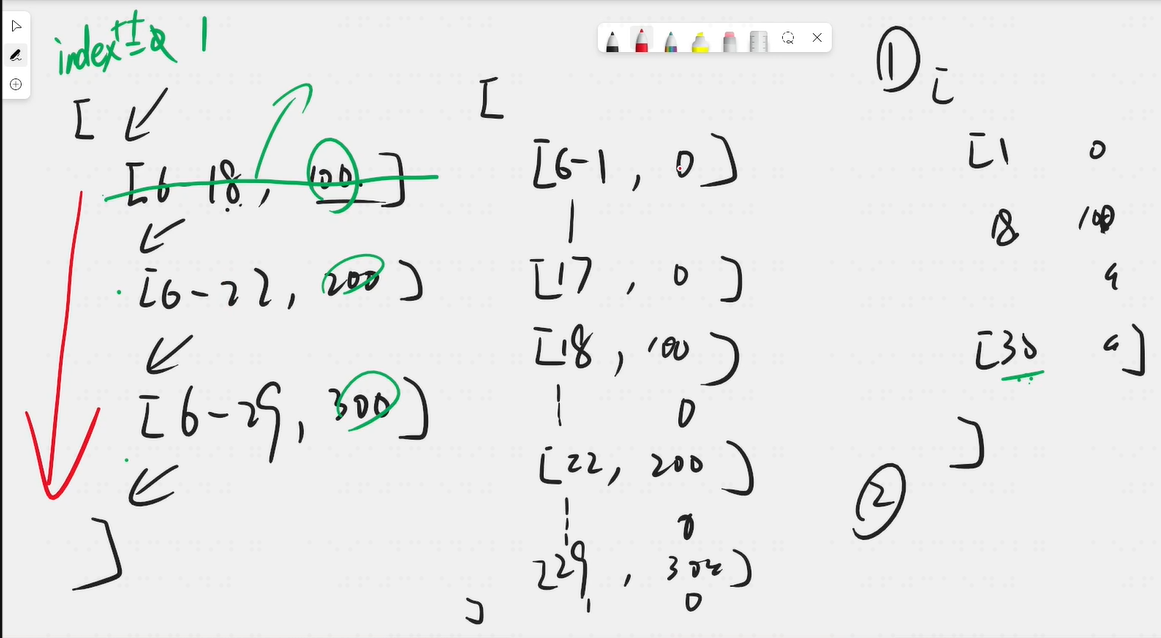 index += 1
[
[6-18, 100]
[6-22, 200]
[6-29, 300]
]
[
[6-1, 0]
[17, 0]
[18, 100]
0
[22, 200]
0
0
]
①
[
[1 0
18 100
[30
]
②